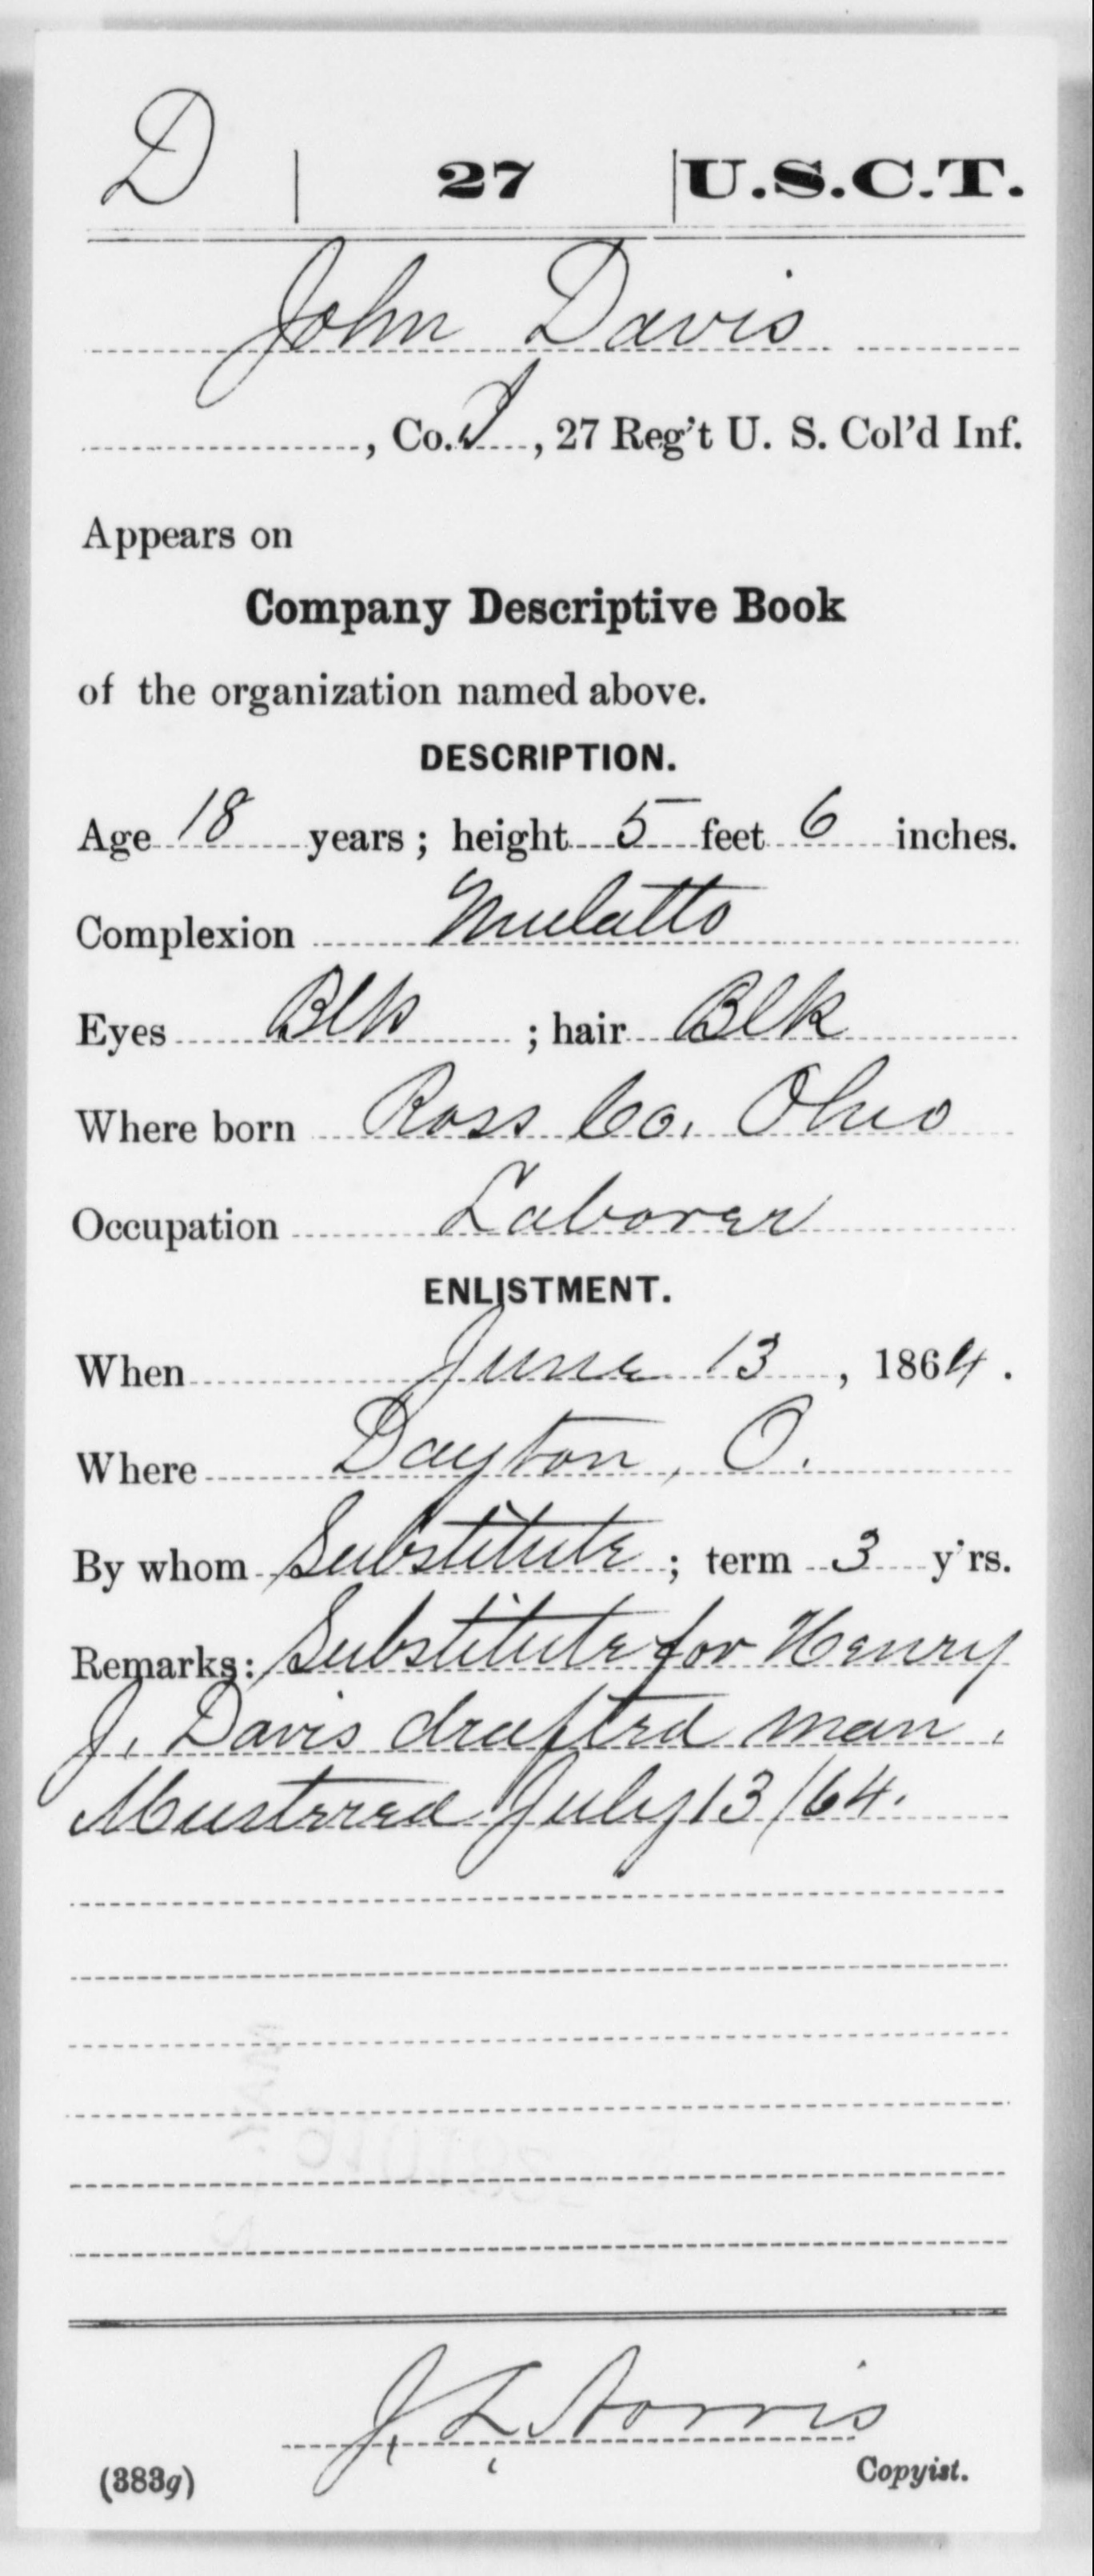 D | 27 | U.S.C.T.
John Davis
, Co. I, 27 Reg't U. S. Col'd Inf.
Appears on
Company Descriptive Book
of the organization named above.
DESCRIPTION.
Age 18 years; height 5 feet 6 inches.
Complexion Mulatto
Eyes Blk; hair Blk
Where born Ross Co. Ohio
Occupation Laborer
ENLISTMENT.
When June 13, 1864.
Where Dayton, O.
By whom Substitute; term 3 y'rs.
Remarks: Substitute for Henry
J. Davis drafted man.
Mustered July 13/64.
J. L. Norris
(383g) Copyist.